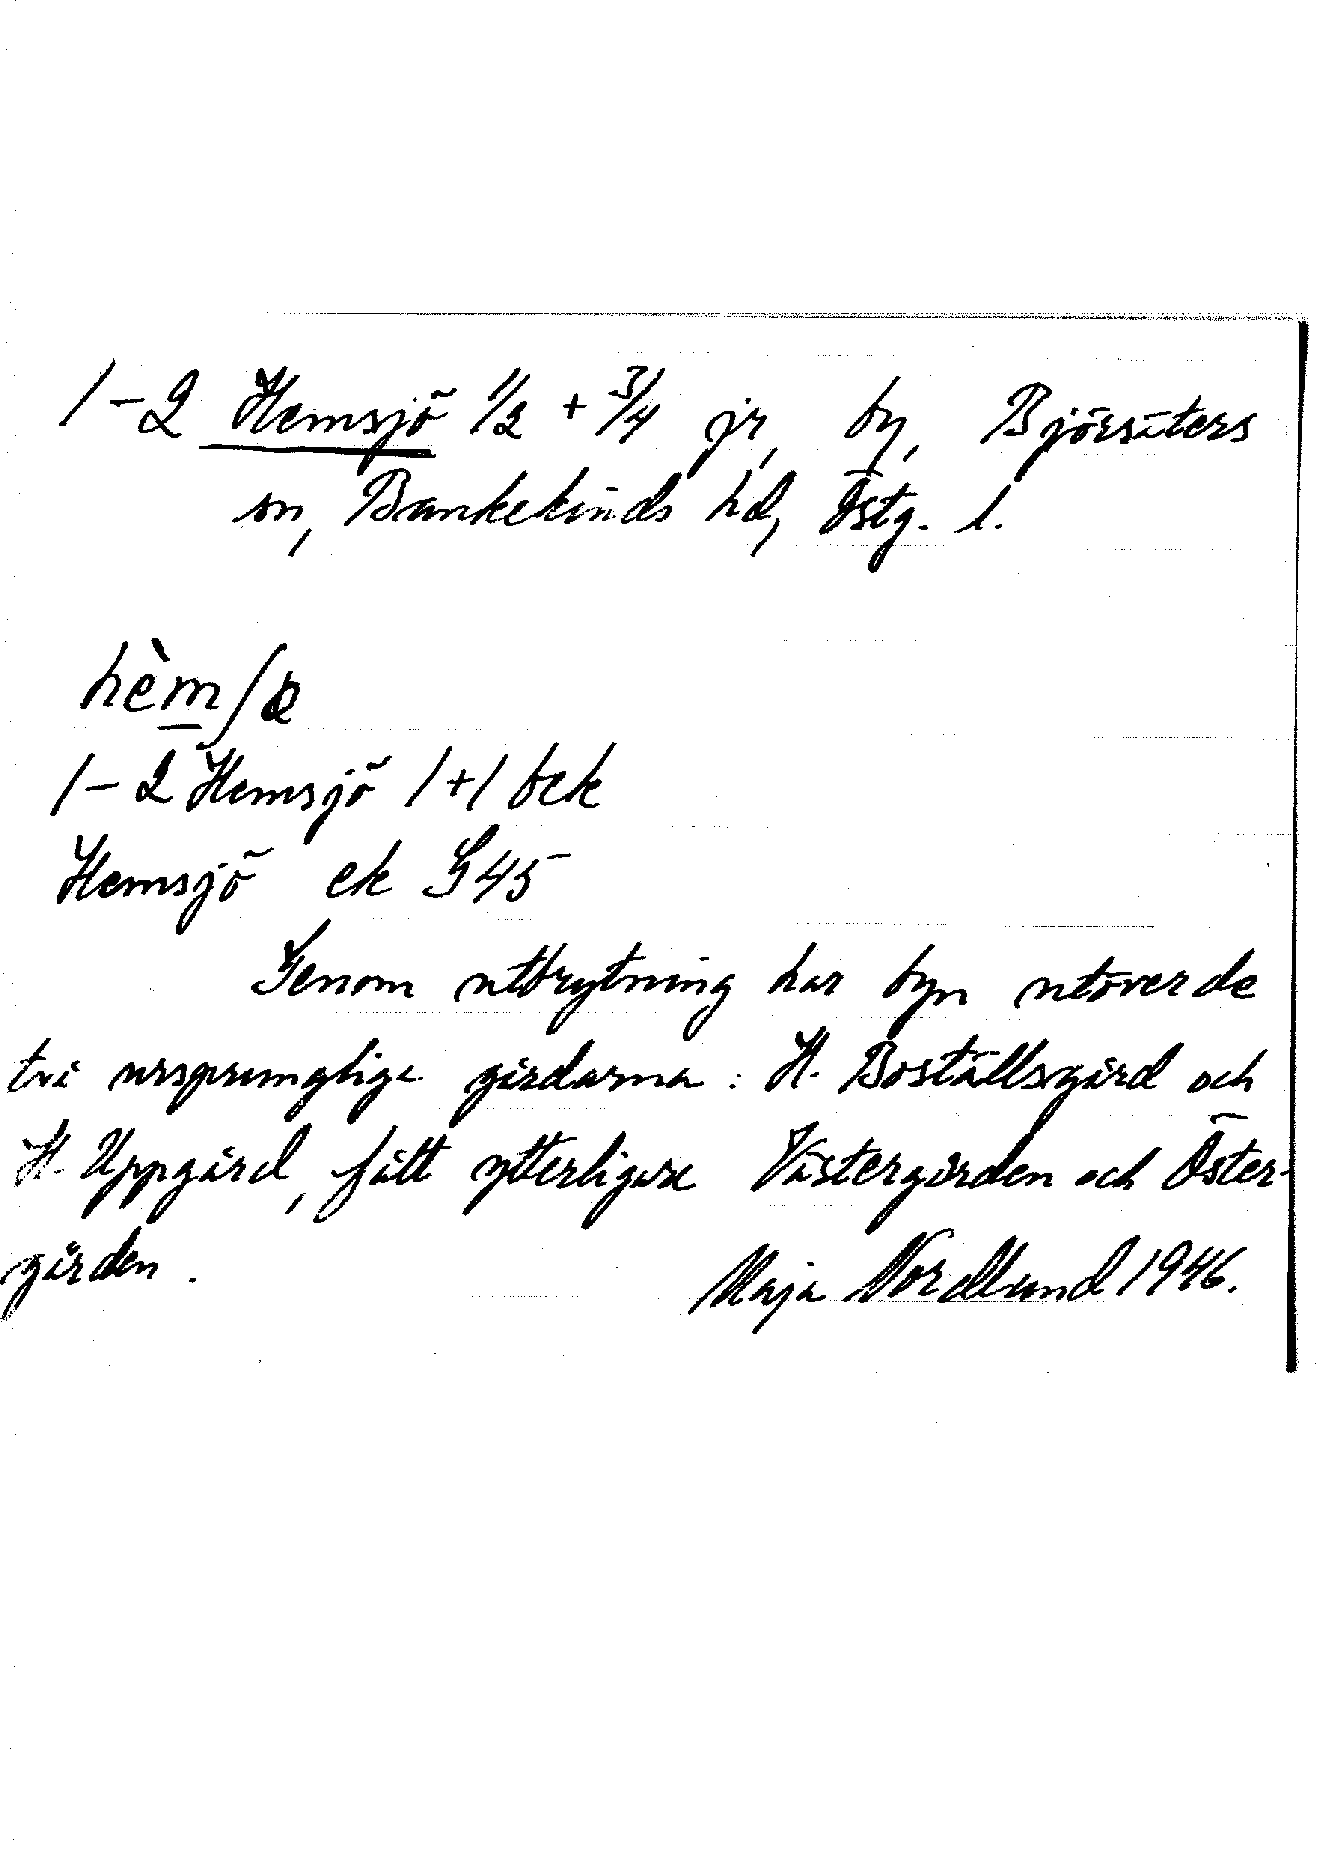 1–2 Hemsjö 1/2 + 3/4 jr, by, Björsäters
sn, Bankekinds hd, Östg. l.
hèm̲ʃɶ
1–2 Hemsjö 1+1 bek
Hemsjö ek G45
Genom utbrytning har byn utöver de
två ursprungliga gårdarna: H. Boställsgård och
H. Uppgård, fått ytterligare Västergården och Öster-
gården.
Maja Nordlund 1946.